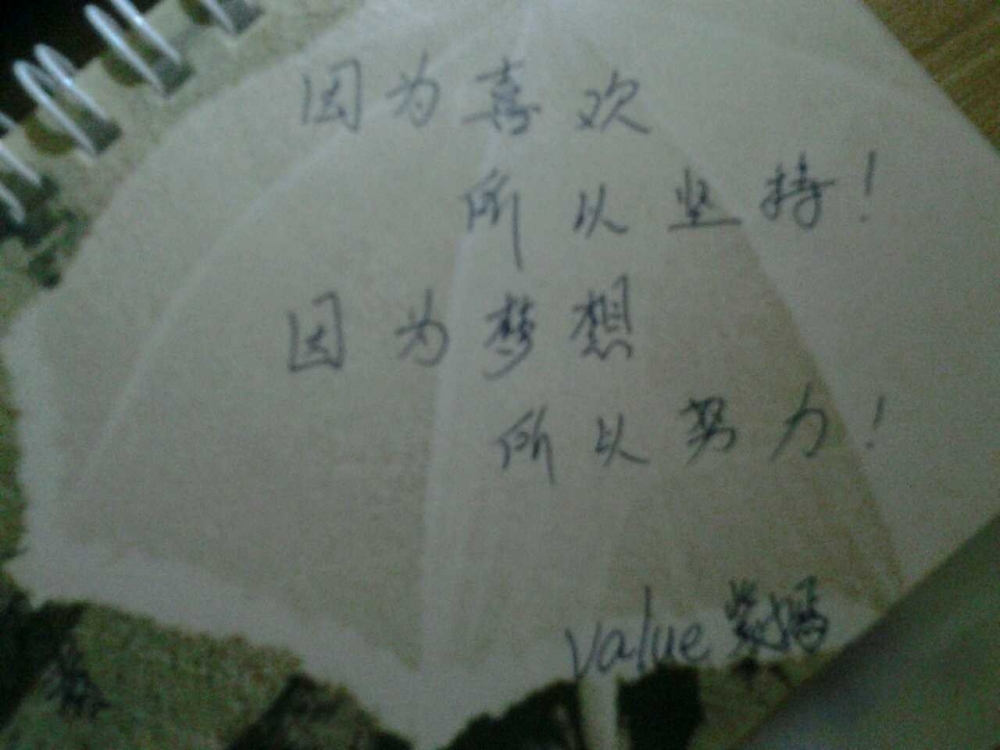 因为喜欢
所以坚持!
因为梦想
所以努力!
value 紫嫣